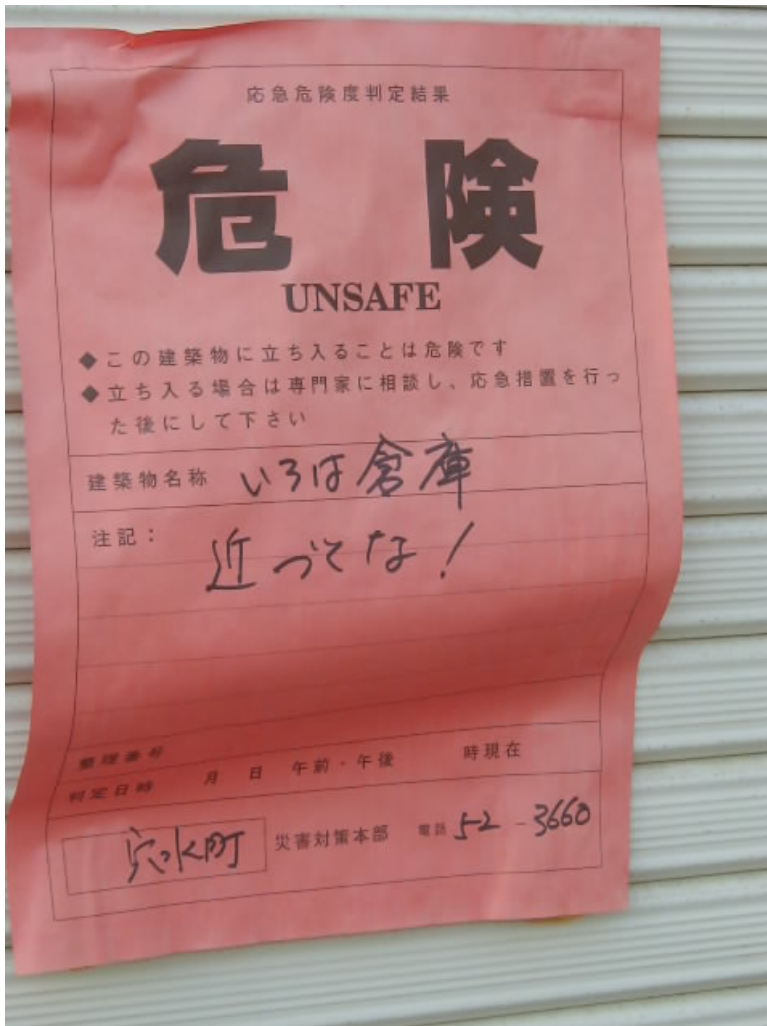 応急危険度判定結果
危険
UNSAFE
◆この建築物に立ち入ることは危険です
◆立ち入る場合は専門家に相談し、応急措置を行っ
た後にして下さい
建築物名称 いろは倉庫
注記：
近づくな！
整理番号
判定日時 月 日 午前・午後 時現在
穴水町 災害対策本部 電話 52-3660